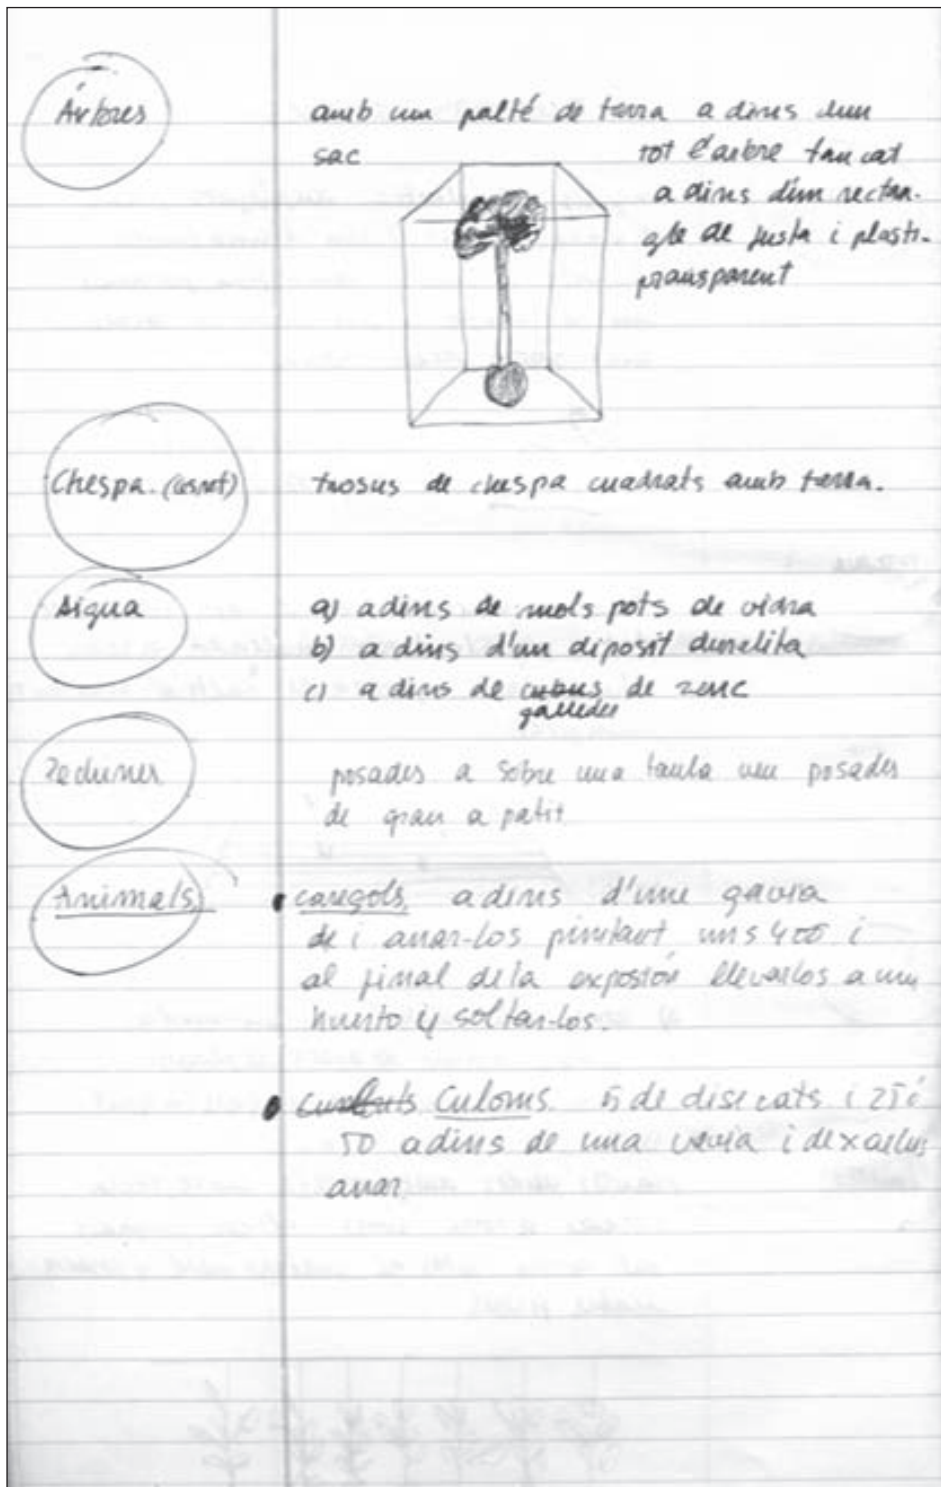 Árbres
amb un palté de terra a dins dun
sac
tot l'arbre tancat
a dins d'un rectan-
gle de fusta i plasti-
transparent
Chespa. (cesnet)
trosus de chespa cuadrats amb terra.
Aigua
a) adins de mols pots de vidra
b) a dins d'un diposit duralita
c) a dins de cubus de zenc
galledes
posades a sobre una taula ven posades
de gran a patit
Animals
caregols, adins d'une gavia
de i anar-los pinitant uns 400 i
al final dela exposión llevarlos a un
huerto y soltar-los.
Culoms. 5 de disecats i 25 i
50 adins de una vavia i dexarlus
anar.